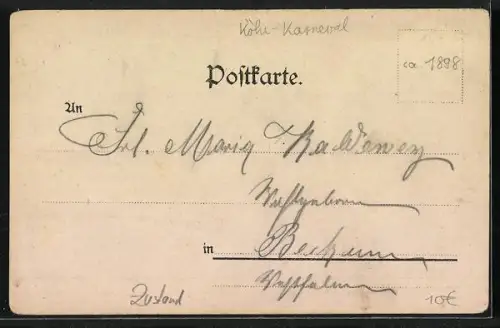 Köln-Karneval
ca 1898
Postkarte.
An
Frl. Maria Kaldewey
in Beckum
Westfalen
Zustand
10€